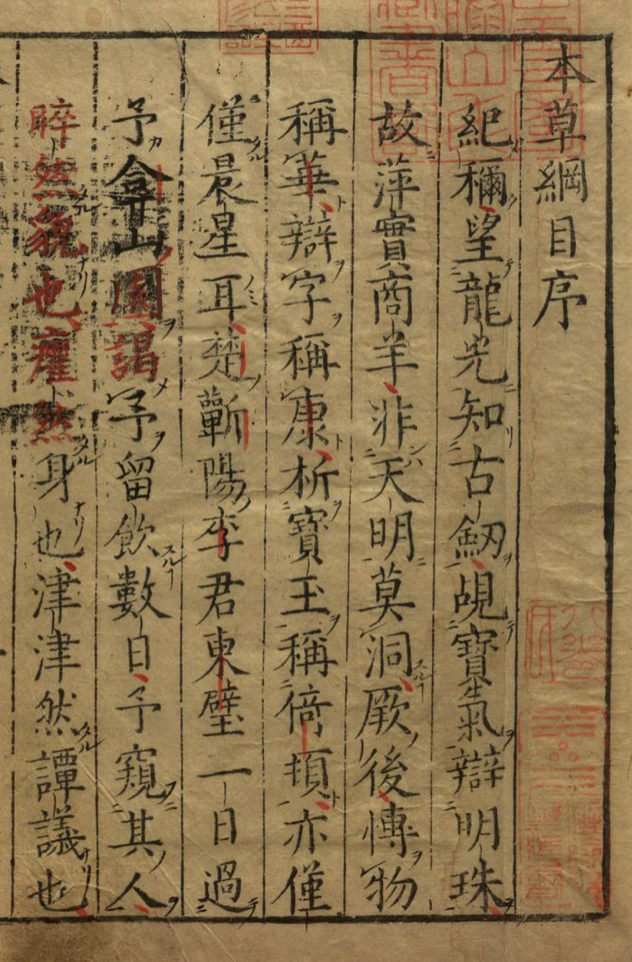 本草綱目序
紀穪望龍光知古劔覘寶氣辯明珠
故萍實商羊非天明莫洞厥後愽物
稱華辯字稱康析寶玉稱倚頓亦僅
僅晨星耳楚蘄陽李君東璧一日過
予弇山園謁予留飲數日予窺其人
睟然貌也癯然身也津津然譚議也